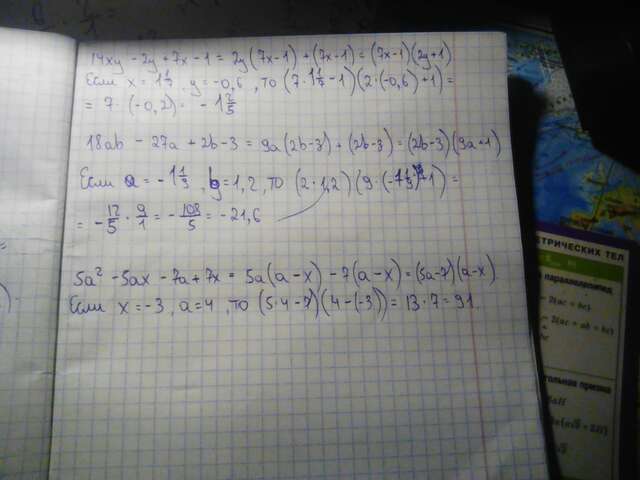 14xy - 2y + 7x - 1 = 2y(7x-1) + (7x-1) = (7x-1)(2y+1)
Если x = 1 1/7, y = -0,6, то (7·1 1/7 - 1)(2·(-0,6)+1) =
= 7·(-0,2) = -1 2/5
18ab - 27a + 2b - 3 = 9a(2b-3) + (2b-3) = (2b-3)(9a+1)
Если a = -1 1/9, b = 1,2, то (2·1,2)(9·(-1 1/9)+1) =
= -12/5 · 9/1 = -108/5 = -21,6
5a² - 5ax - 7a + 7x = 5a(a-x) - 7(a-x) = (5a-7)(a-x)
Если x = -3, a = 4, то (5·4-7)(4-(-3)) = 13·7 = 91.
ЕТРИЧЕСКИХ ТЕЛ
параллелепипед
2(ab + bc)
2(ac + ab + bc)
abc
гольная призма